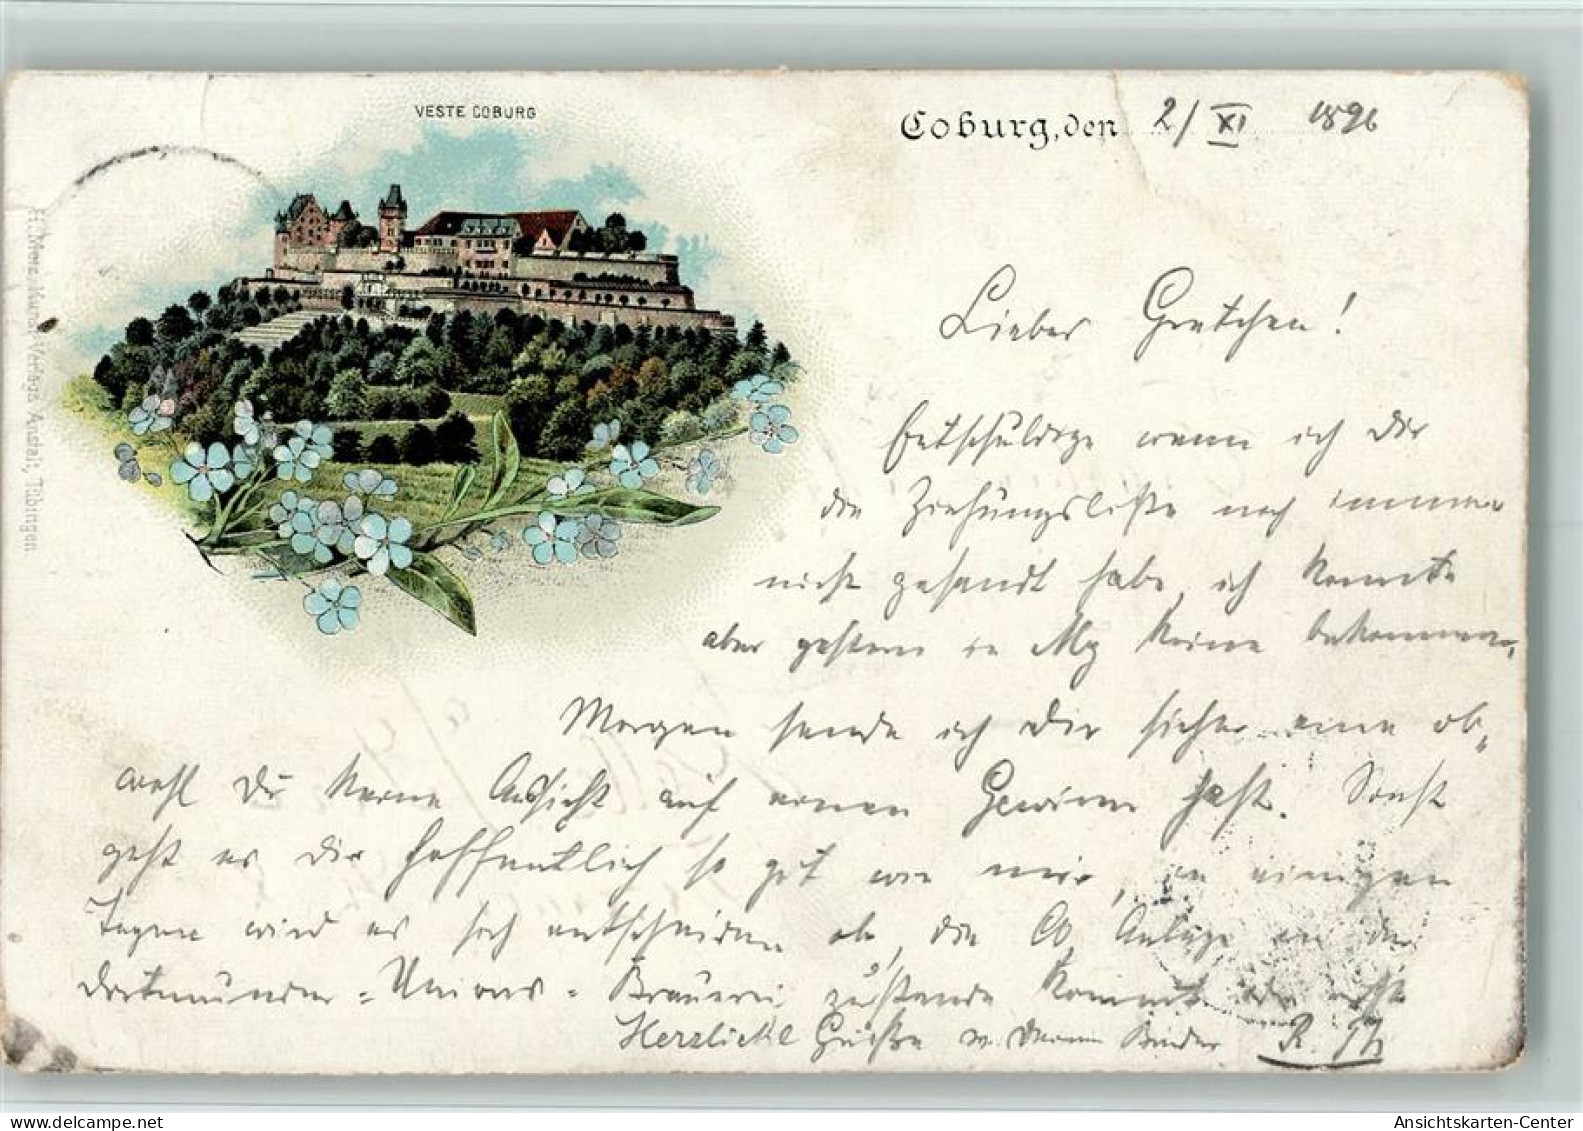 VESTE COBURG
Coburg, den 2/XI 1896
H. Merz, Kunst-Verlags-Anstalt, Tübingen
Lieber Gretchen!
Entschuldige wenn ich Dir
die Ziehungsliste noch immer
nicht gesandt habe, ich konnte
aber gestern in Mg keine bekommen,
Morgen sende ich Dir sicher eine ob,
wohl Du keine Aussicht auf einen Gewinn hast. Sonst
geht es Dir hoffentlich so gut wie mir, in einigen
Tagen wird es sich entscheiden ob, die CO2 Anlage in der
Dortmunder-Unions-Brauerei zustande kommt oder nicht
Herzliche Grüße v. Deinem Bruder R. Th
Ansichtskarten-Center
www.delcampe.net